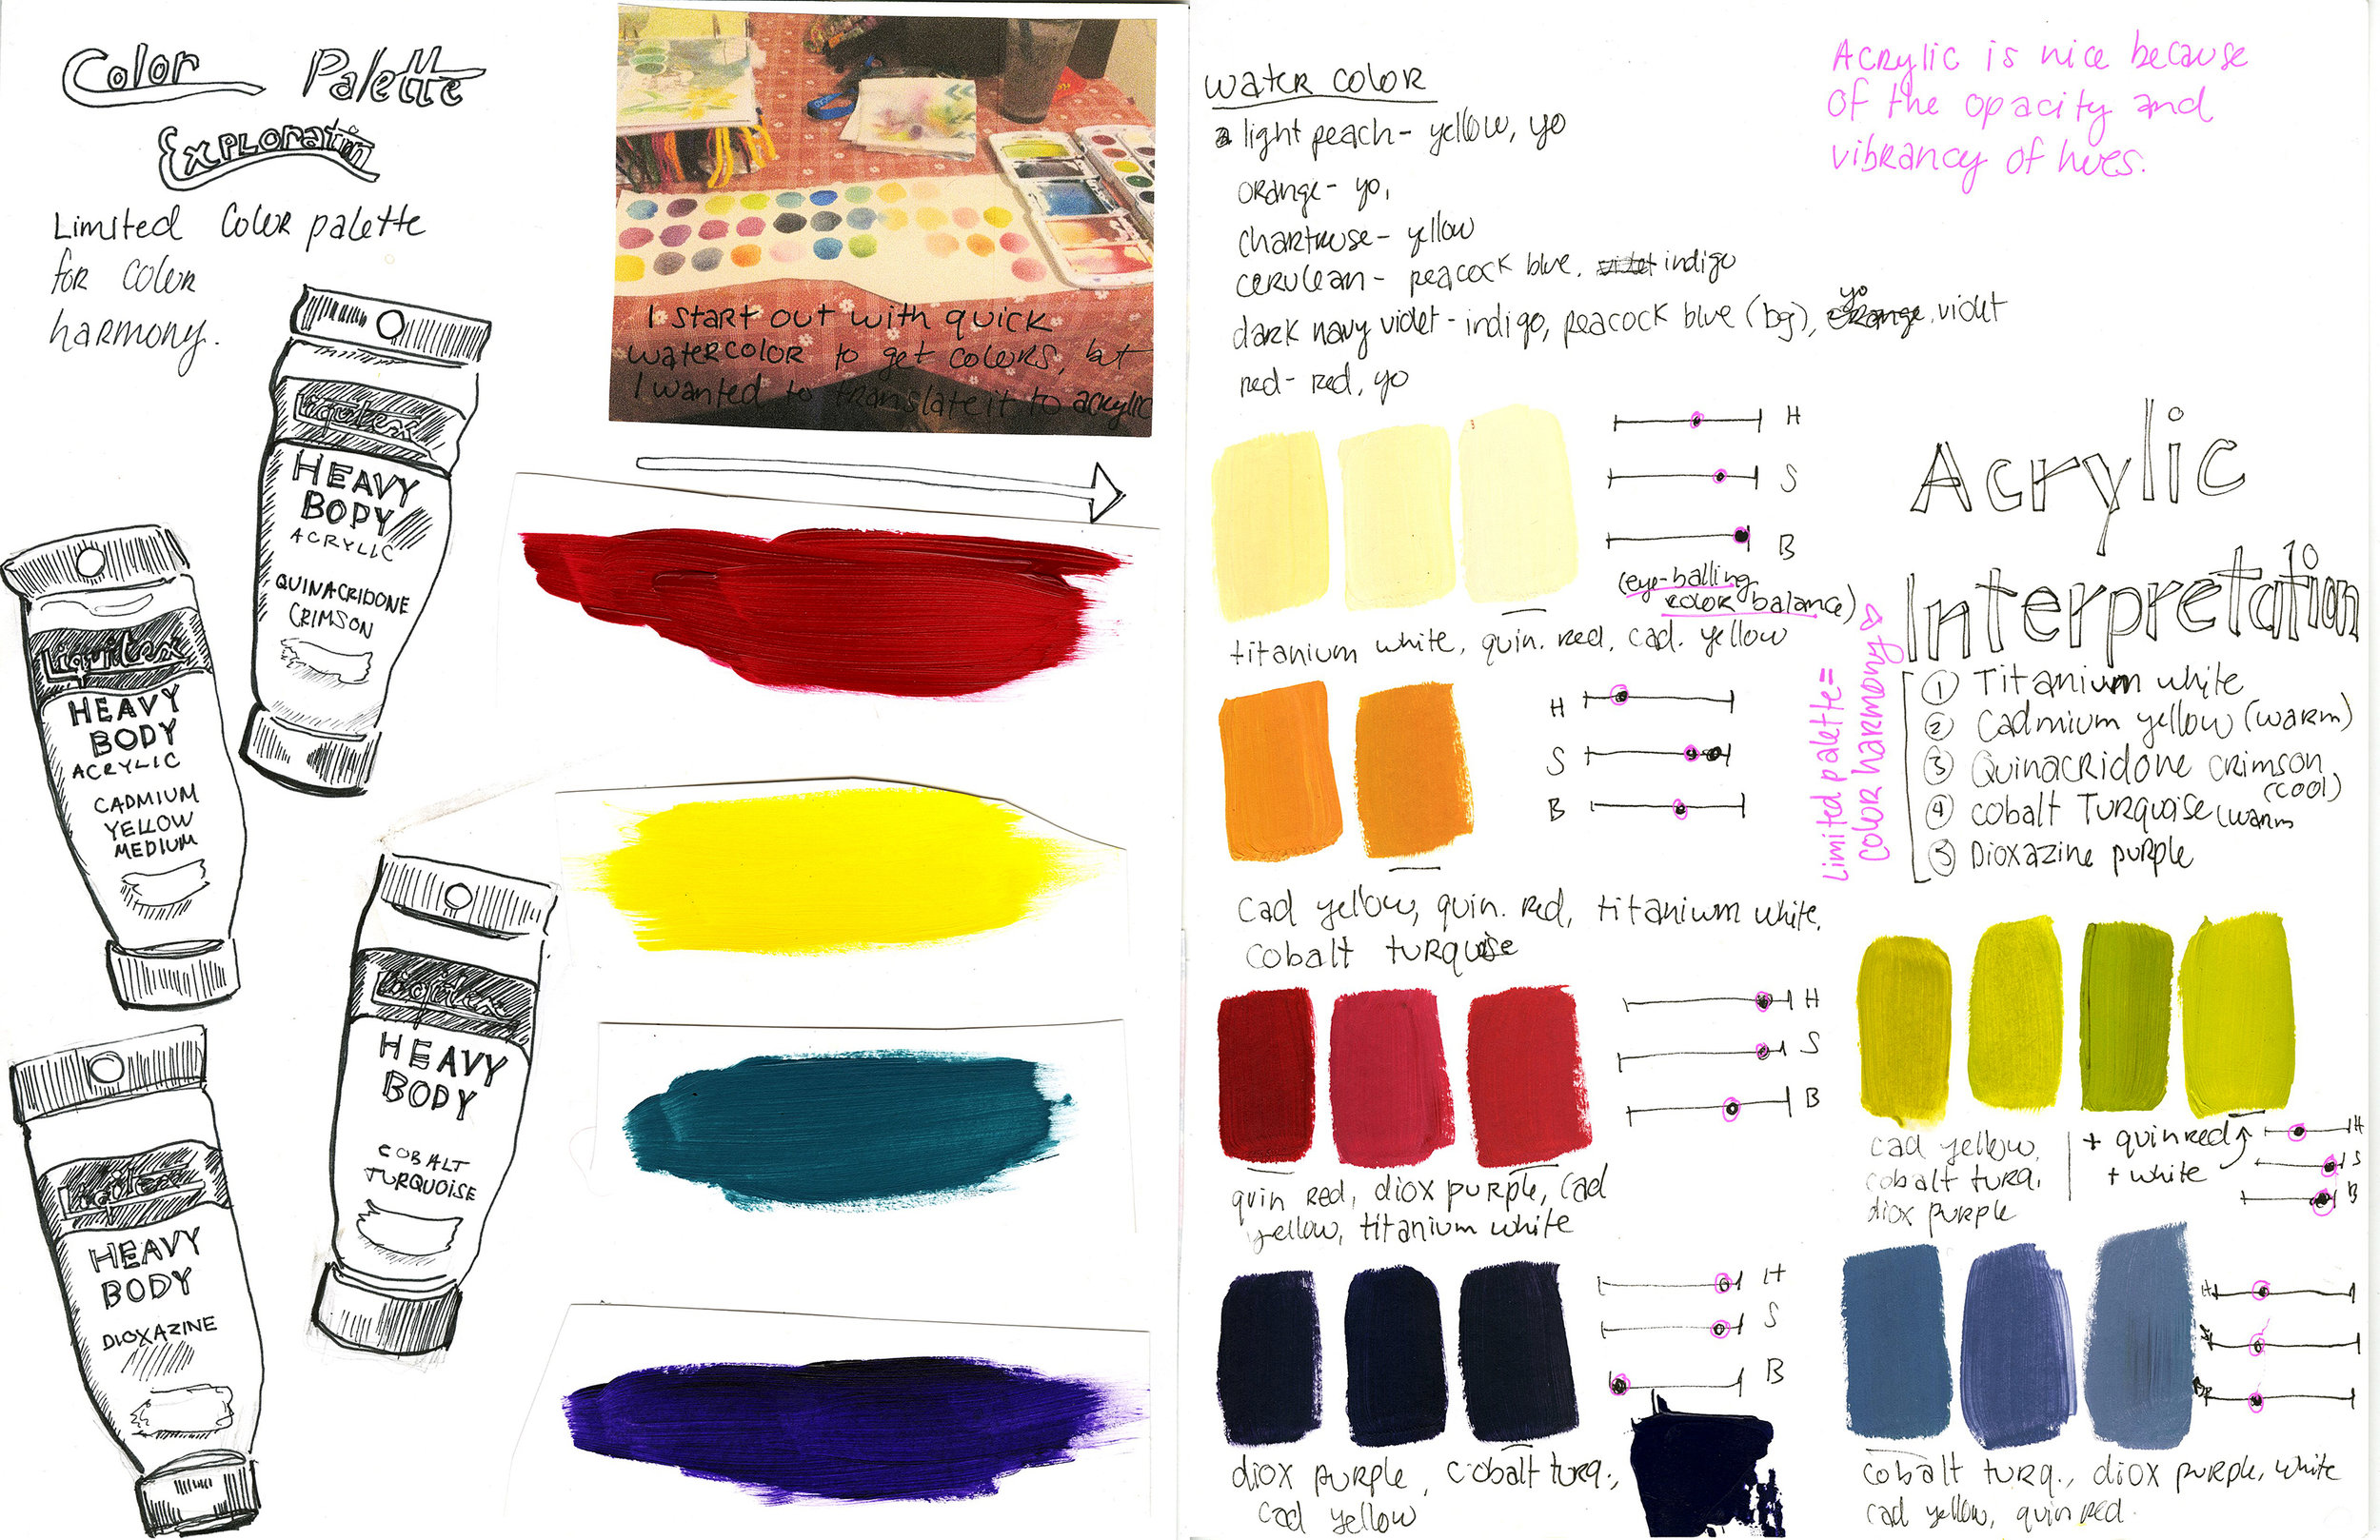 Color Palette
Exploration
Limited Color palette
for color
harmony.
Liquitex
HEAVY
BODY
ACRYLIC
QUINACRIDONE
CRIMSON
Liquitex
HEAVY
BODY
ACRYLIC
CADMIUM
YELLOW
MEDIUM
Liquitex
HEAVY
BODY
COBALT
TURQUOISE
Liquitex
HEAVY
BODY
DIOXAZINE
I start out with quick
watercolor to get colors, but
I wanted to translate it to acrylic
water color
light peach- yellow, yo
orange- yo,
chartruse- yellow
cerulean- peacock blue, indigo
dark navy violet- indigo, peacock blue (bg), yo, violet
red- red, yo
Acrylic is nice because
of the opacity and
vibrancy of hues.
H
S
B
(eye-balling
color balance)
titanium white, quin. red, cad. yellow
H
S
B
cad yellow, quin. red, titanium white,
cobalt turquoise
H
S
B
quin red, diox purple, cad
yellow, titanium white
H
S
B
diox purple, cobalt turq.,
cad yellow
Acrylic
Interpretation
Limited palette=
color harmony
1 Titanium white
2 Cadmium yellow (warm)
3 Quinacridone crimson
(cool)
4 cobalt Turquoise (warm
5 Dioxazine purple
cad yellow,
cobalt turq,
diox purple
+ quin red
+ white
H
S
B
H
cobalt turq., diox purple, white
cad yellow, quin red.